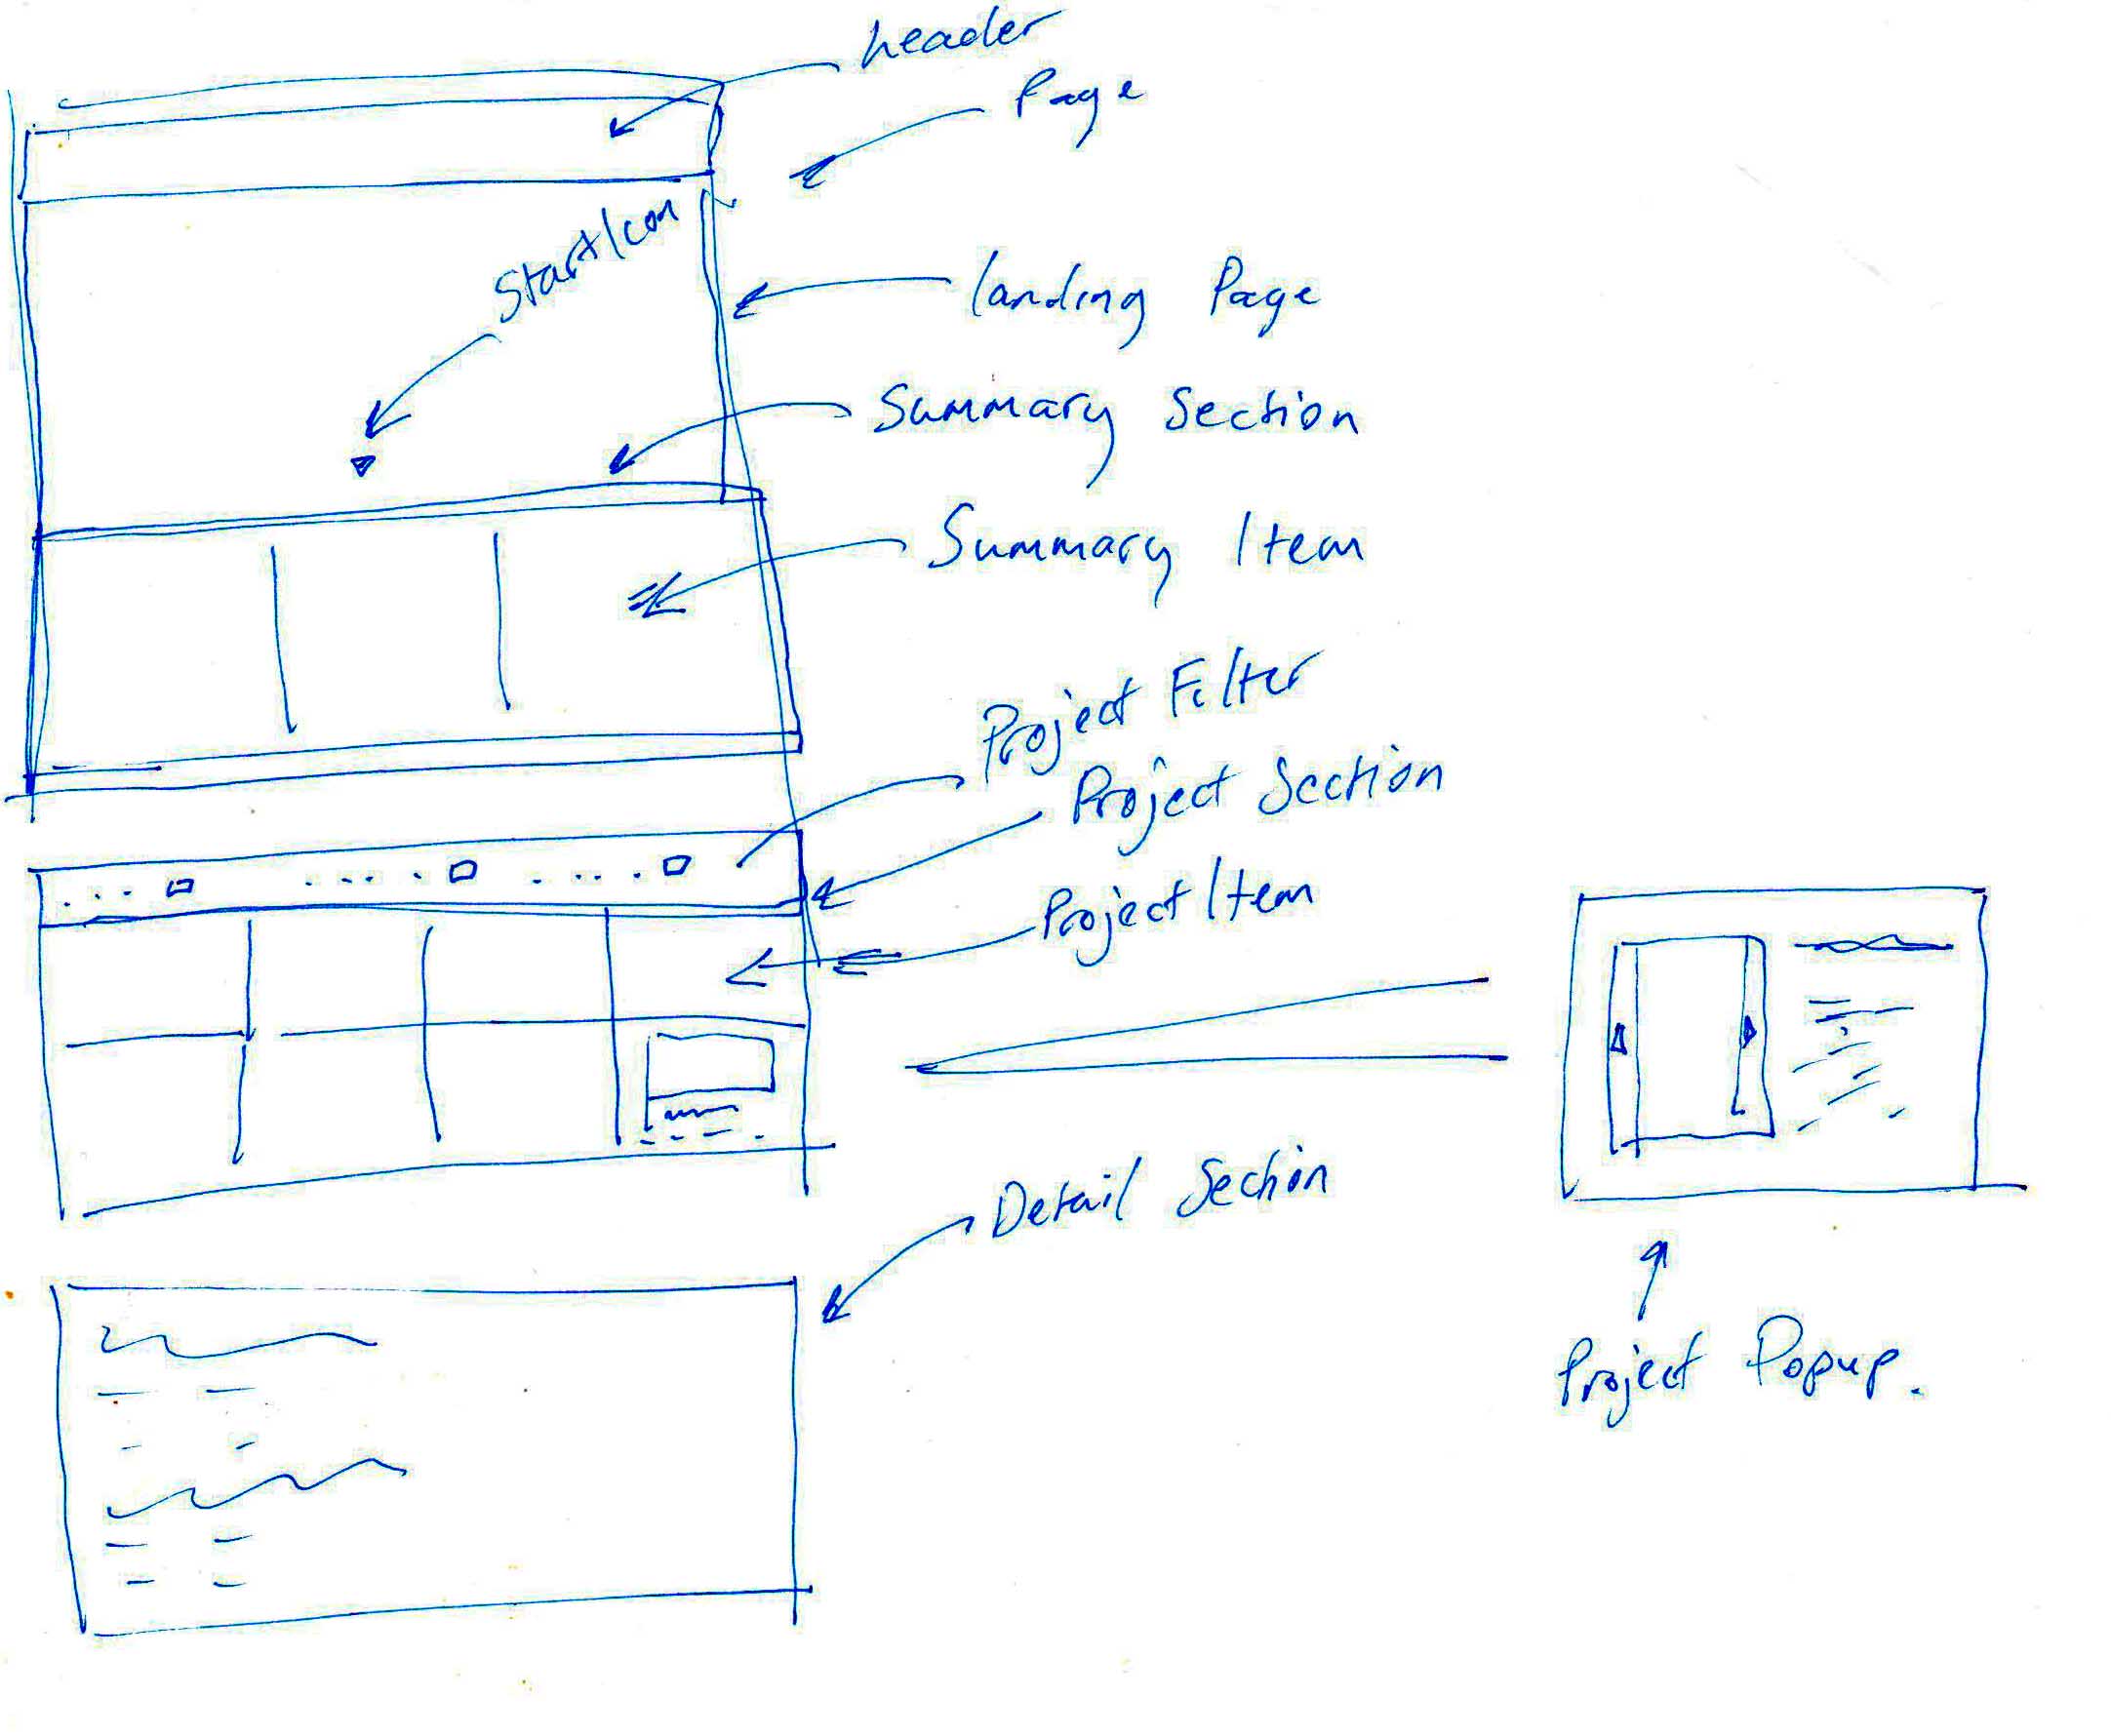 header
Page
Start Icon
landing Page
Summary Section
Summary Item
Project Filter
Project Section
Project Item
Detail Section
Project Popup.